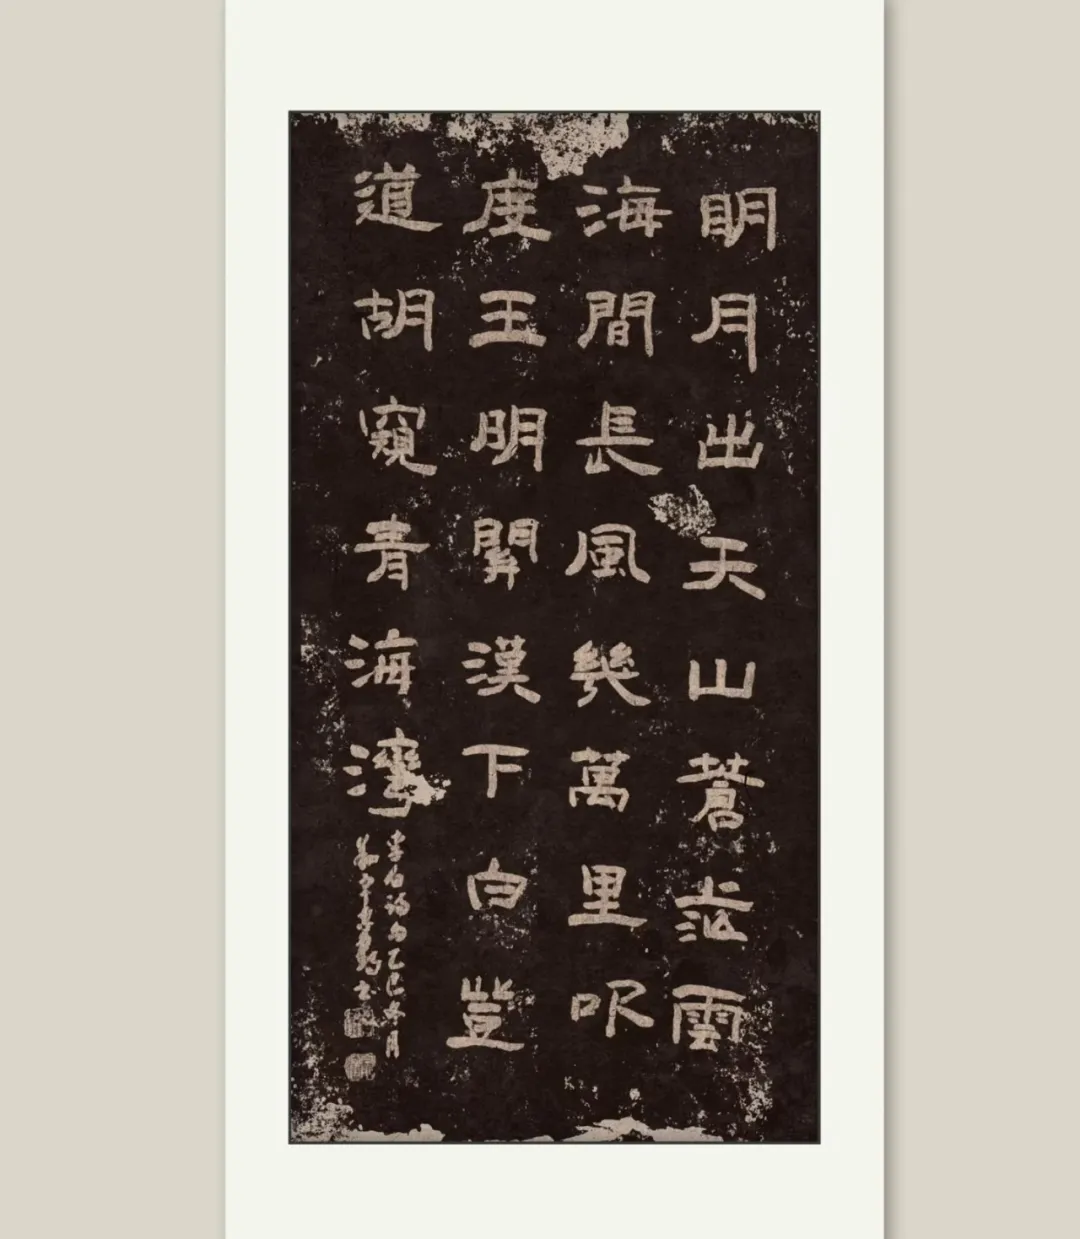 明月出天山蒼茫雲
海間長風幾萬里吹
度玉明關漢下白豈
道胡窺青海灣
李白詩句乙巳冬月